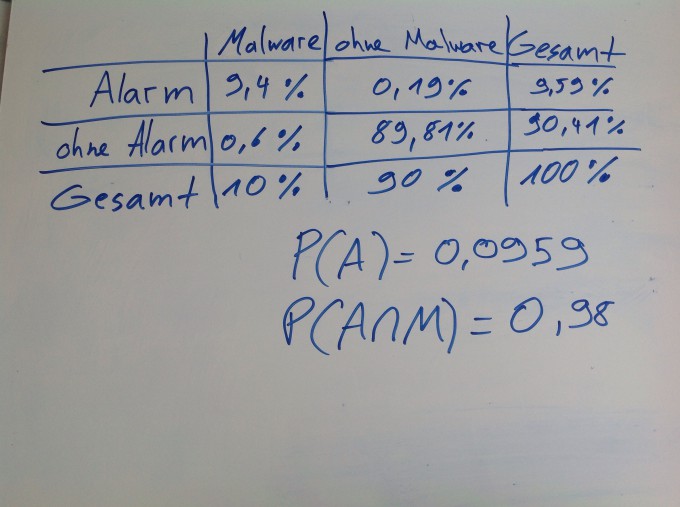 Malware ohne Malware Gesamt
Alarm 9,4 % 0,19% 9,59%
ohne Alarm 0,6 % 89,81% 90,41%
Gesamt 10 % 90 % 100 %
P(A) = 0,0959
P(A∩M) = 0,98